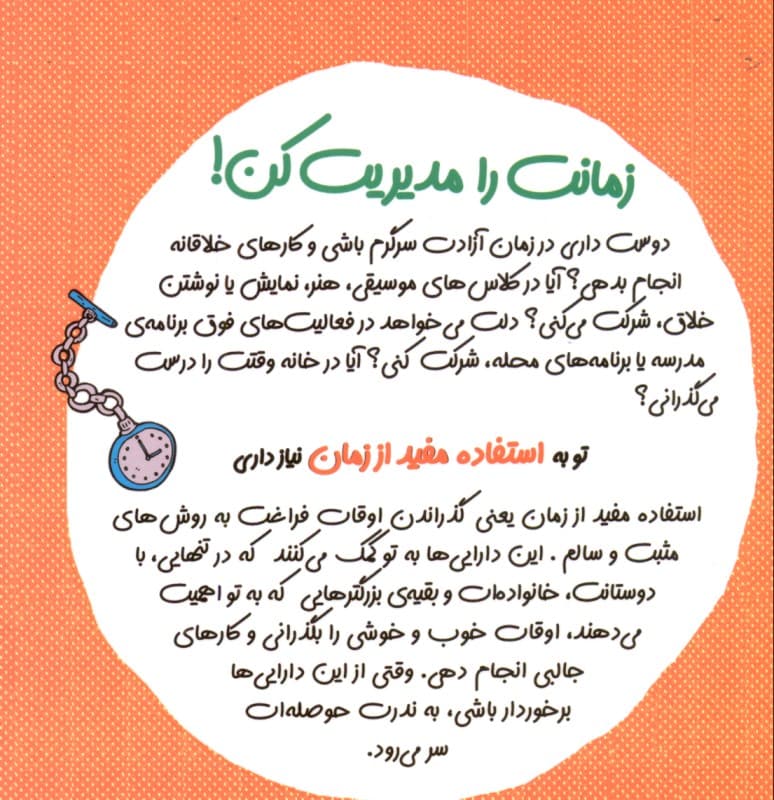 زمانت را مدیریت کن!
دوست داری در زمان آزادت سرگرم باشی و کارهای خلاقانه
انجام بدهی؟ آیا در کلاس های موسیقی، هنر، نمایش یا نوشتن
خلاق، شرکت می‌کنی؟ دلت می خواهد در فعالیت‌های فوق برنامه‌ی
مدرسه یا برنامه‌های محله، شرکت کنی؟ آیا در خانه وقتت را درست
می‌گذرانی؟
تو به استفاده مفید از زمان نیاز داری
استفاده مفید از زمان یعنی گذراندن اوقات فراغت به روش های
مثبت و سالم . این دارایی‌ها به تو کمک می‌کنند که در تنهایی، با
دوستانت، خانواده‌ات و بقیه‌ی بزرگترهایی که به تو اهمیت
می‌دهند، اوقات خوب و خوشی را بگذرانی و کارهای
جالبی انجام دهی. وقتی از این دارایی‌ها
برخوردار باشی، به ندرت حوصله‌ات
سر می‌رود.